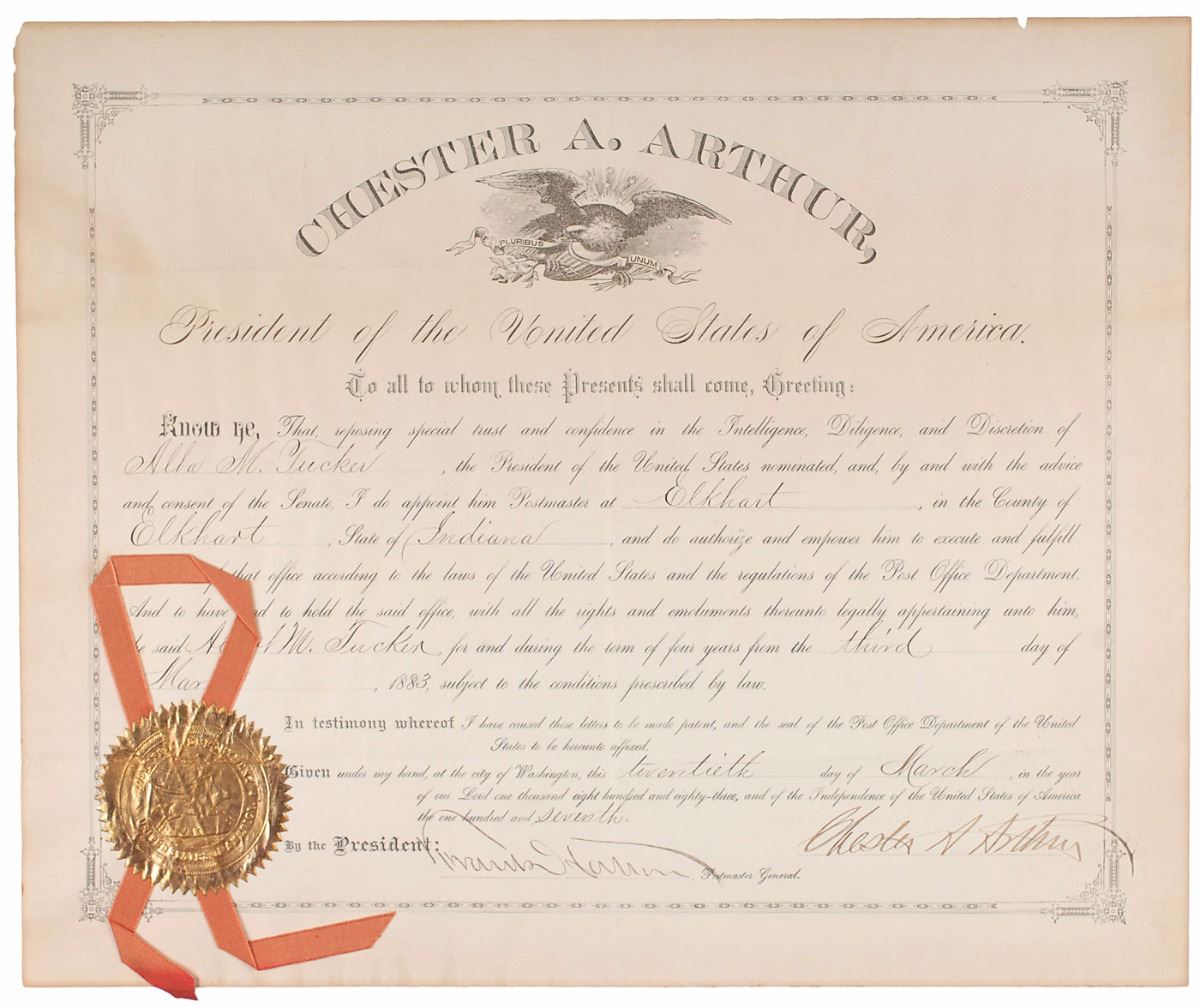 CHESTER A. ARTHUR,
PLURIBUS UNUM
President of the United States of America.
To all to whom these Presents shall come, Greeting:
Know ye, That, reposing special trust and confidence in the Intelligence, Diligence, and Discretion of
Alba M. Tucker, the President of the United States nominated, and, by and with the advice
and consent of the Senate, I do appoint him Postmaster at Elkhart, in the County of
Elkhart, State of Indiana, and do authorize and empower him to execute and fulfill
that office according to the laws of the United States and the regulations of the Post Office Department.
And to have and to hold the said office, with all the rights and emoluments thereunto legally appertaining unto him,
said M. Tucker for and during the term of four years from the third day of
Mar, 1883, subject to the conditions prescribed by law.
In testimony whereof I have caused these letters to be made patent, and the seal of the Post Office Department of the United
States to be hereunto affixed.
Given under my hand, at the city of Washington, this twentieth day of March, in the year
of our Lord one thousand eight hundred and eighty-three, and of the Independence of the United States of America
the one hundred and seventh.
By the President:
Chester A Arthur
Postmaster General.